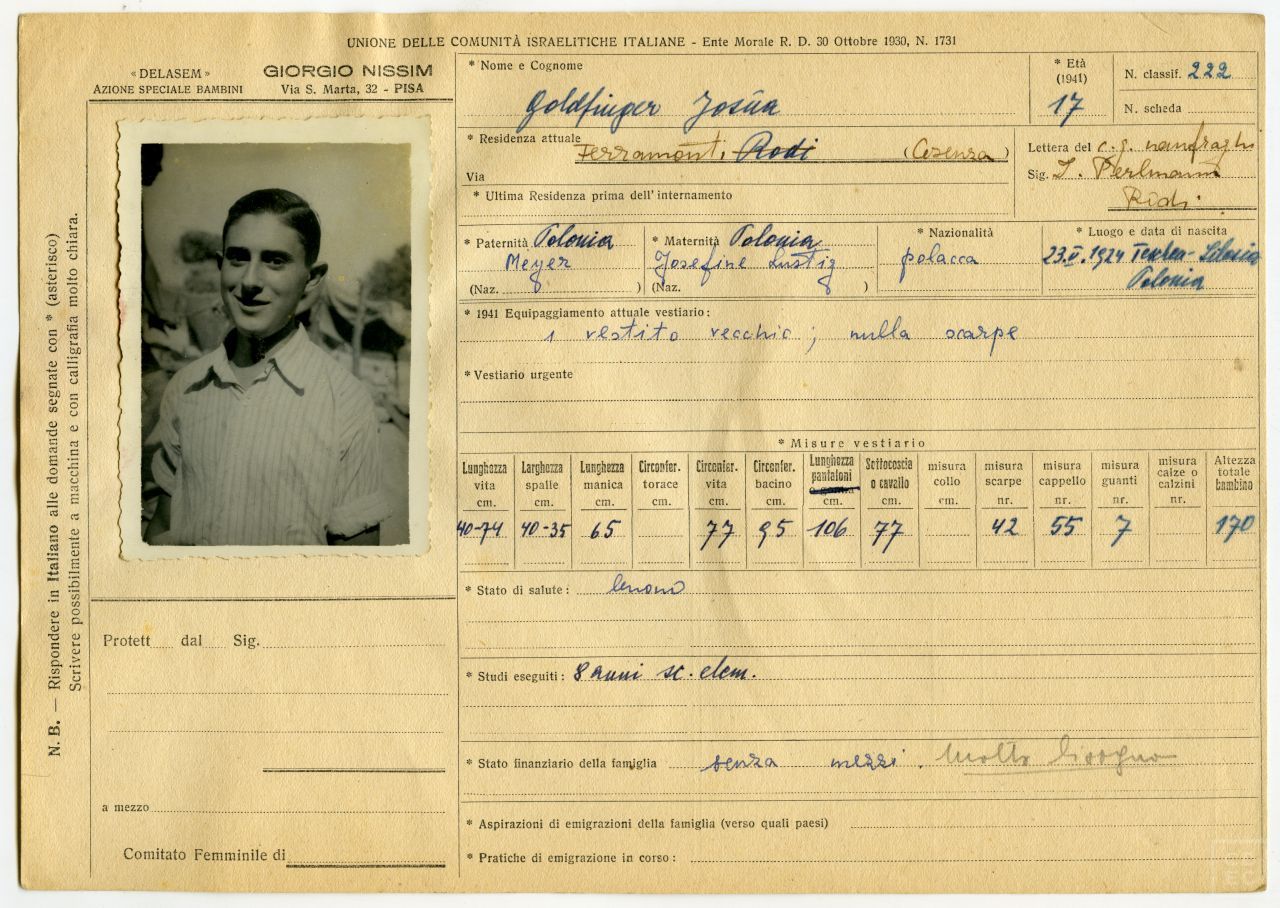 UNIONE DELLE COMUNITÀ ISRAELITICHE ITALIANE - Ente Morale R. D. 30 Ottobre 1930, N. 1731
« DELASEM »
AZIONE SPECIALE BAMBINI
GIORGIO NISSIM
Via S. Marta, 32 - PISA
N. B. — Rispondere in Italiano alle domande segnate con * (asterisco)
Scrivere possibilmente a macchina e con calligrafia molto chiara.
* Nome e Cognome
Goldfinger Josua
* Età
(1941)
17
N. classif. 222
N. scheda
* Residenza attuale Ferramonti Rodi (Cosenza)
Via
* Ultima Residenza prima dell' internamento
Lettera del c. g. naufraghi
Sig. I. Perlmann
Rodi
* Paternità Polonia
Meyer
(Naz. )
* Maternità Polonia
Josefine Lustig
(Naz. )
* Nazionalità
polacca
* Luogo e data di nascita
23.V.1924 Slesia
Polonia
* 1941 Equipaggiamento attuale vestiario:
1 vestito vecchio; nulla scarpe
* Vestiario urgente
* Misure vestiario
Lunghezza vita cm. 40-74
Larghezza spalle cm. 40-35
Lunghezza manica cm. 65
Circonfer. torace cm.
Circonfer. vita cm. 77
Circonfer. bacino cm. 95
Lunghezza pantaloni o gamba cm. 106
Sottocoscia o cavallo cm. 77
misura collo cm.
misura scarpe nr. 42
misura cappello nr. 55
misura guanti nr. 7
misura calze o calzini nr.
Altezza totale bambino 170
* Stato di salute: buono
* Studi eseguiti: 8 anni sc. elem.
* Stato finanziario della famiglia senza mezzi. Molto bisogno
* Aspirazioni di emigrazioni della famiglia (verso quali paesi)
* Pratiche di emigrazione in corso:
Protett dal Sig.
a mezzo
Comitato Femminile di